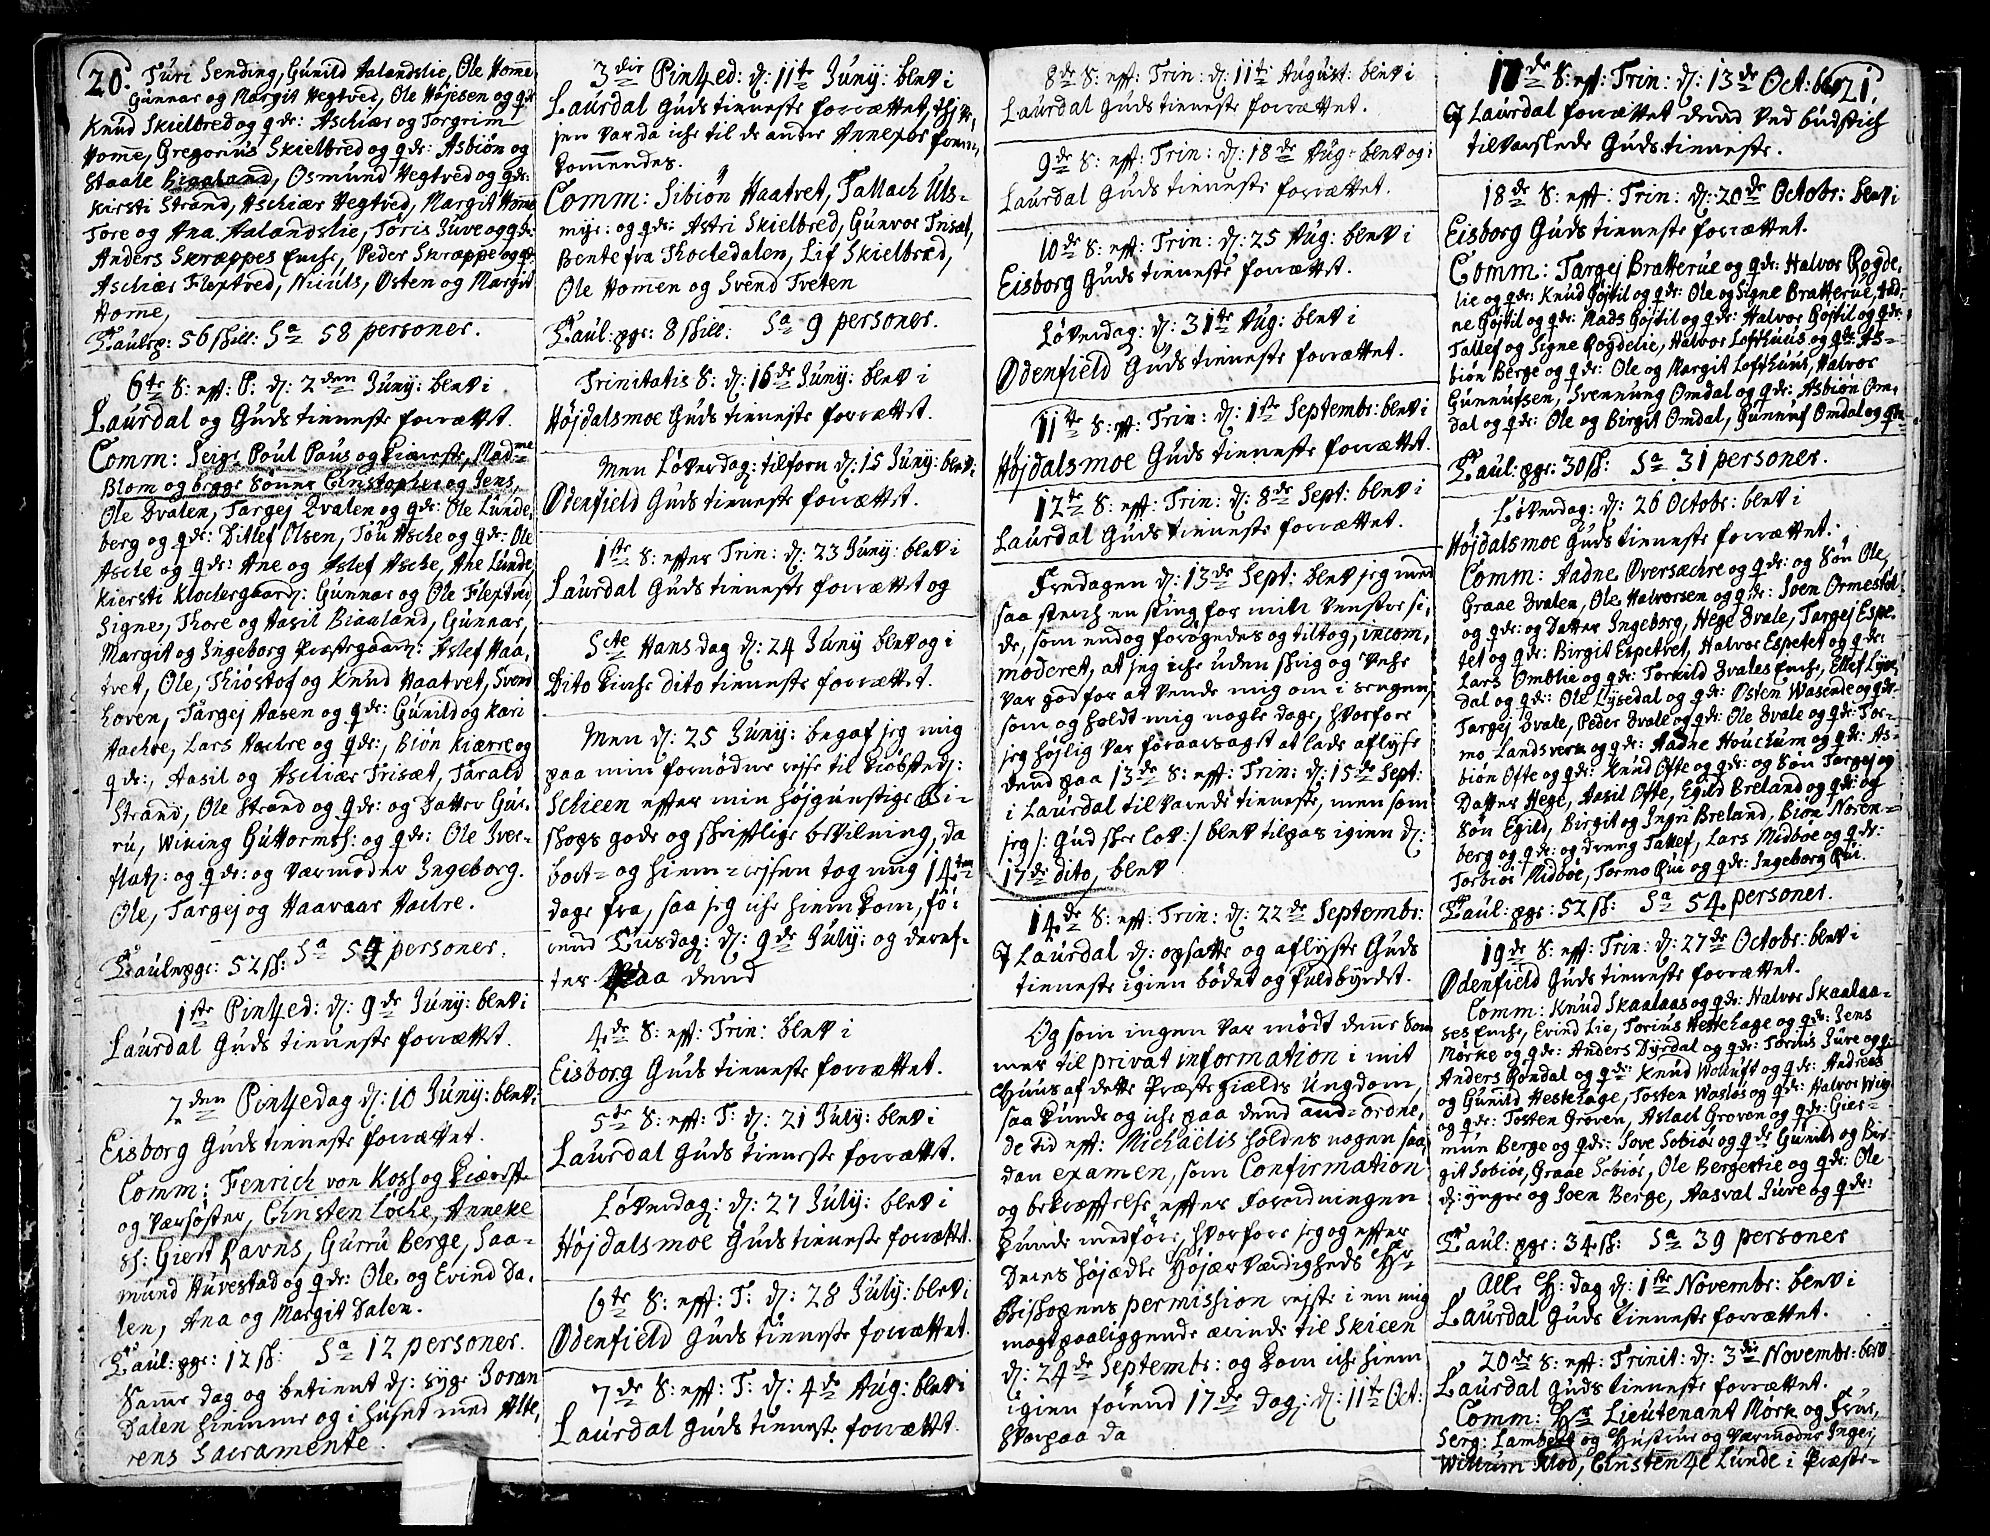 20.
Turi Sending, Gunild Aalandslie, Ole Home,
Gunnar og Margit Hegtved, Ole Høje̅sen og qde:
Knud Skielbred og qde: Aschiær og Torgrim
Home̅, Gregorius Skielbred og qde: Asbiøn og
Staale Biaaland, Osmund Hegtved og qde:
Kirsti Strand, Aschiær Hegtved, Margit Home̅
Tore og Ana Aalandslie, Toris Juve og qde:
Anders Skræppes Enche, Peder Skræppe og qde
Aschiær Flextved, Niculs, Østen og Margit
Home̅,
Taulpg: 56 skill: Sa 58 personer.
6te S: eff: P: d: 2den Juny: blev i
Laurdal og Guds tienneste forrættet.
Comm: Seigr Poul Paus og Kiæreste, Madme
Blom og begge Sønner Christopher og Jens,
Ole Dvalen, Targej Dvalen og qde: Ole Lunde,
berg og qde: Ditlef Olsen, Tou Asche og qde: Ole
Asche og qde: Ane og Aslef Asche, Ane Lunde,
Kiersti Klochergaard: Gunnar og Ole Flextved,
Signe, Thore og Aasil Biaaland, Gunnar,
Margit og Ingeborg Præstegaard: Aslef Haa,
tvet, Ole, Thiostof og Knud Haatvet, Svend
hoven, Targej Aasen og qde: Gunild og Kari
Aachre, Lars Aachre og qde:, Biøn Kiærre og
qde:, Aasil og Aschiær Trisæt, Tarald
Strand, Ole Strand og qde: og Datter Gur-
ru, Wiking Guttormss: og qde: Ole Iver-
flatz: og qde: og Værmoder Ingeborg.
Ole, Targej og Haavaar Aachre.
Taulpge: 52 sk: Sa 54 personer.
1ste Pintzed: d: 9de Juny: blev i
Laurdal Guds tienneste forrættet.
2den Pintzedag d: 10 Juny: blev i
Eisborg Guds tienneste forrættet.
Comm: Fenrich von Koss og Kiæreste
og Værsøster, Christen Loche, Anneke
ss: Giert Ravns, Gurru Berge, Saa-
mund Huvestad og qde: Ole og Evind Da-
len, Ana og Margit Dalen.
Taul: pge: 12 sk: Sa 12 personer.
Same̅ dag og betient d: syge Joran
Dalen hiemme og i huset med Alte,
rens Sacramente.
3die Pintzed: d: 11te Juny: blev i
Laurdal Guds tienneste forrættet,
sen var da iche til de andre Annexer frem,
kommendes.
Comm: Sibiøn Haatvet, Tallach Uls-
myr: og qde: Astri Skielbred, Gunvor Trisæt,
Bente fra Thochedalen, Lif Skielbred,
Ole Home̅n og Svend Tveten
Taul: pge: 8 skill: Sa 9 personer.
Trinitatis S: d: 16de Juny: blev i
Højdalsmoe Guds tienneste forrættet.
Men Løverdag: tilforn d: 15 Juny: blev i
Ødenfield Guds tienneste forrættet.
1ste S: effter Trin: d: 23 Juny: blev i
Laurdal Guds tienneste forrættet og
Scte Hans dag d: 24 Juny blev og i
Dito Kirche dito tienneste forrættet.
Men d: 25 Juny: begaf jeg mig
paa min fornødne rejse til Kiøbsted:
Schieen effter min højgunstige Bi-
skops gode og skrifftlige bevilning, da
bort- og hiem-rejsen tog mig 14ten
dage fra, saa jeg iche hiem kom, fø-
rend Tiisdag: d: 9de July: og deref-
ter paa dend
4de S: eff: Trin: blev i
Eisborg Guds tienneste forrættet.
5te S: eff: T: d: 21 July: blev i
Laurdal Guds tienneste forrættet.
Løverdag: d: 27 July: blev i
Højdalsmoe Guds tienneste forrættet.
6te S: efft: T: d: 28 July: blev i
Ødenfield Guds tienneste forrættet.
7de S: efft: T: d: 4de Aug: blev i
Laurdal Guds tienneste forrættet.
8de S: eff: Trin: d: 11te August: blev i
Laurdal Guds tienneste forrættet.
9de S: eff: Trin: d: 18de Aug: blev og i
Laurdal Guds tienneste forrættet.
10de S: eff: Trin: d: 25 Aug: blev i
Eisborg Guds tienneste forrættet.
Løverdag: d: 31te Aug: blev i
Ødenfield Guds tienneste forrættet.
11te S: eff: Trin: d: 1ste Septembr: blev i
Højdalsmoe Guds tienneste forrættet.
12te S: eff: Trin: d: 8de Sept: blev i
Laurdal Guds tienneste forrættet.
Fredagen d: 13de Sept: blev jeg med
saa sterch en sting for min venstre si,
de, som endog forøgedes og tiltog, incom,
moderet, at jeg iche uden skrig og vehe
var god for at vende mig om i sengen,
som og holdt mig nogle dage, hvorfore
jeg højlig var foraarsaget at lade aflyse
dend paa 13de S: eff: Trin: d: 15de Sept:
i Laurdal tilværende tieneste, men som
jeg /: Gud skee lov :/ blev tilpas igien d:
17de dito, blev
14de S: eff: Trin: d: 22de Septembr:
I Laurdal d: opsatte og aflyste Guds
tieneste igien bødet og fuldbyrdet.
Og som ingen var mødt dene̅ Som
mer til privat information i mit
Huus af dette Præstegields Ungdom,
saa kunde og iche paa dend and-ordne,
de tid eff: Michaelis holdes nogen saa,
dan examen, som Confirmation
og bekræfftelse effter forordningen
kunde medføre, hvorfore jeg og effter
Deres højædle Højærværdigheds Hr
Biskopens permission rejste i en mig
magtpaaliggende ærinde til Skieen
d: 24de Septembr: og kom iche hiem
igien førend 17de dag: d: 11te Oct:
hvorpaa da
21.
17de S: eff: Trin: d: 13de Oct: blev
I Laurdal forrættet dend ved budstich
tilvarslede Guds tienneste.
18de S: efft: Trin: d: 20de Octobr: blev i
Eisborg Guds tienneste forrættet.
Comm: Targej Bratterue og qde: Halvor Rogde,
lie og qde: Knud Gøjtil og qde: Ole og Signe Bratterue, And,
ne Gøjtil og qde: Mads Gøjtil og qde: Halvor Gøjtil og qde:
Tallef og Signe Rogdelie, Halvor Loffthuus og qde: As-
biøn Berge og qde: Ole og Margit Loffthuus, Halvor
Gunnufsen, Svennung Omdal og qde: Asbiøn Om,
dal og qde: Ole og Birgit Omdal, Gunnuf Omdal og qde
Taul: pge: 30 sk: Sa 31 personer.
Løverdag: d: 26 Octobr: blev i
Højdalsmoe Guds tienneste forrættet.
Comm: Aadne Oversachre og qde: og Søn Ole,
Graae Dvalen, Ole Halvorsen og qde: Joen Ormestøl
og qde: og Datter Ingeborg, Hege Dvale, Targej Espe,
tet og qde: Birgit Espetvet, Halvor Espetet og qde:
Lars Omblie og qde: Torkild Dvales Enche, Ellef Lyse,
dal og qde: Ole Lysedal og qde: Østen Wasende og qde:
Targej Dvale, Peder Dvale og qde: Ole Dvale og qde: Tor-
mo Landsverk og qde: Aadne Houchum og qde: As-
biøn Ofte og qde: Knud Ofte og qde: og Søn Targej og
Datter Hege, Aasil Ofte, Egild Breland og qde: og
Søn Egild, Birgit og Ingri Breland, Biøn Noren-
berg og qde: og dreng Tallef, Lars Midboe og qde:
Torbiør Midboe, Tormo Rui og qde: Ingeborg Rui.
Taul: pge: 52 sk: Sa 54 personer.
19de S: eff: Trin: d: 27de Octobr: blev i
Ødenfield Guds tienneste forrættet.
Comm: Knud Skaalaas og qde: Halvor Skaalaa-
ses Enche, Evind Lie, Torius Hettehage og qde: Jens
Mørke og qde: Anders Dyrdal og qde: Torius Juve og q:
Anders Rondal og qde: Knud Wolluft og qde: Andreas
og Gunild Heskehage, Tosten Wasløs og qde: Halvor Wug
og qde: Tosten Groven, Aslach Groven og qde: Gier-
mun Berge og qde: Tove Sobiør og qde Gunild og Bir-
git Sobiør, Graae Sobiør, Ole Bergestie og qde: Ole
d: ynger og Joen Berge, Aasval Juve og qde:
Taul: pge: 34 sk: Sa 39 personer
Alle H: dag d: 1ste Novembr: blev i
Laurdal Guds tienneste forrættet.
20de S: eff: Trinit: d: 3die Novembr: blev
Laurdal Guds tienneste forrættet.
Comm: Hr Lieutenant Mørk og Frue,
Serg: Lambert og Hustrue og Værmoder Inger,
Willum Klod, Christen Lunde i Præste-